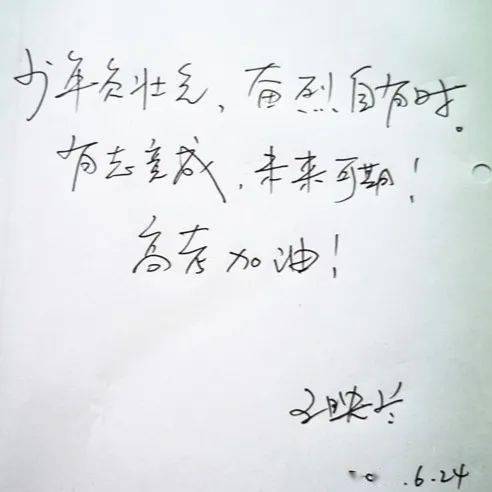 少年负壮气，奋烈自有时。
有志竟成，未来可期！
高考加油！
.6.24